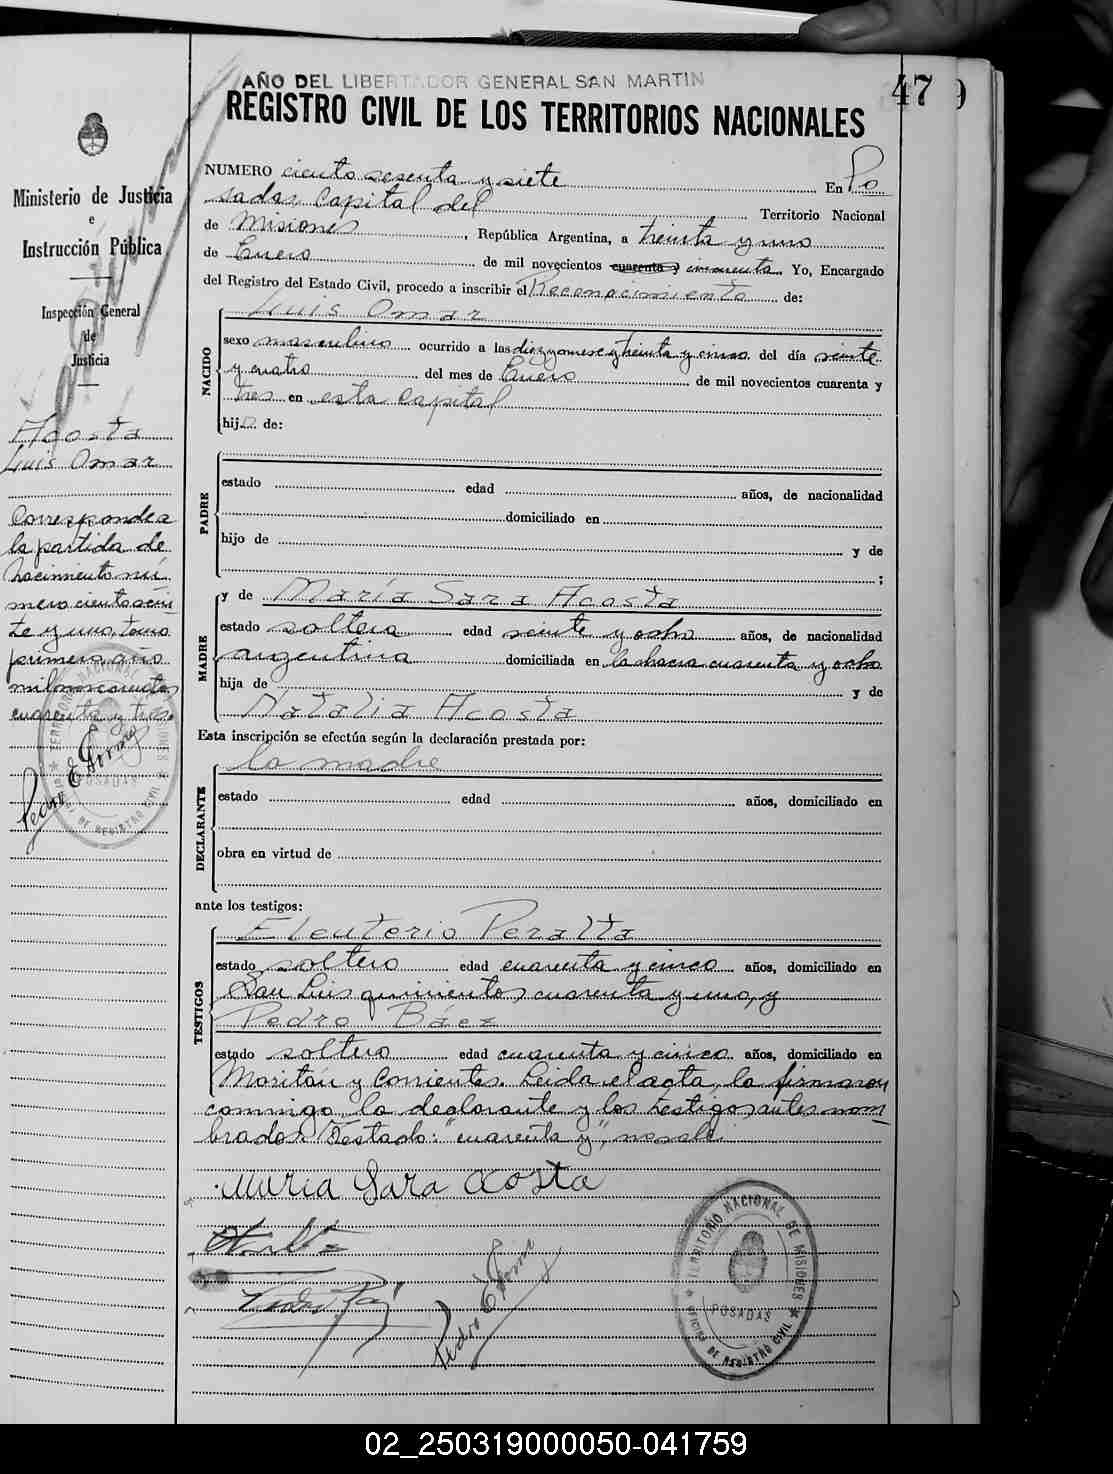 AÑO DEL LIBERTADOR GENERAL SAN MARTIN
47 9
REGISTRO CIVIL DE LOS TERRITORIOS NACIONALES
Ministerio de Justicia
e
Instrucción Pública
Inspección General
de
Justicia
Acosta
Luis Omar
Corresponde a
la partida de
nacimiento nú
mero ciento
te y uno, tomo
primero, año
mil novecientos
cuarenta y tres.
TERRITORIO NACIONAL DE MISIONES
POSADAS
OFICINA DE REGISTRO CIVIL
NUMERO ciento sesenta y siete En Po
sadas Capital del Territorio Nacional
de Misiones, República Argentina, a treinta y uno
de Enero de mil novecientos cuarenta y cincuenta. Yo, Encargado
del Registro del Estado Civil, procedo a inscribir el Reconocimiento de:
NACIDO
Luis Omar
sexo masculino ocurrido a las diez y nueve y treinta y cinco del día veinte
y cuatro del mes de Enero de mil novecientos cuarenta y
tres en esta Capital
hijo de:
PADRE
estado edad años, de nacionalidad
domiciliado en
hijo de y de
;
MADRE
y de María Sara Acosta
estado soltera edad veinte y ocho años, de nacionalidad
argentina domiciliada en la chacra cuarenta y ocho
hija de y de
Natalia Acosta
Esta inscripción se efectúa según la declaración prestada por:
DECLARANTE
la madre
estado edad años, domiciliado en
obra en virtud de
ante los testigos:
TESTIGOS
Eleuterio Peralta
estado soltero edad cuarenta y cinco años, domiciliado en
San Luis quinientos cuarenta y uno, y
Pedro Báez
estado soltero edad cuarenta y cinco años, domiciliado en
Moritán y Corrientes. Leída el acta, la firmaron
conmigo, la declarante y los testigos antes nom
brados. Testado: "cuarenta y", no vale.
Maria Sara Acosta
Pedro E
TERRITORIO NACIONAL DE MISIONES
POSADAS
OFICINA DE REGISTRO CIVIL
02_250319000050-041759